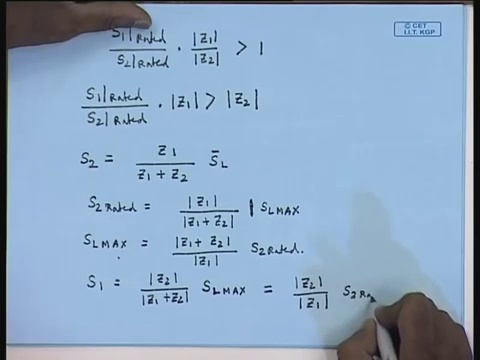 © CET
I.I.T. KGP
S1|Rated / S2|Rated · |Z1| / |Z2| > 1
S1|Rated / S2|Rated · |Z1| > |Z2|
S2 = Z1 / (Z1 + Z2) S̄L
S2 Rated = |Z1| / |Z1 + Z2| | SLMAX
SLMAX = |Z1 + Z2| / |Z1| S2 Rated.
S1 = |Z2| / |Z1 + Z2| SLMAX = |Z2| / |Z1| S2 Ra